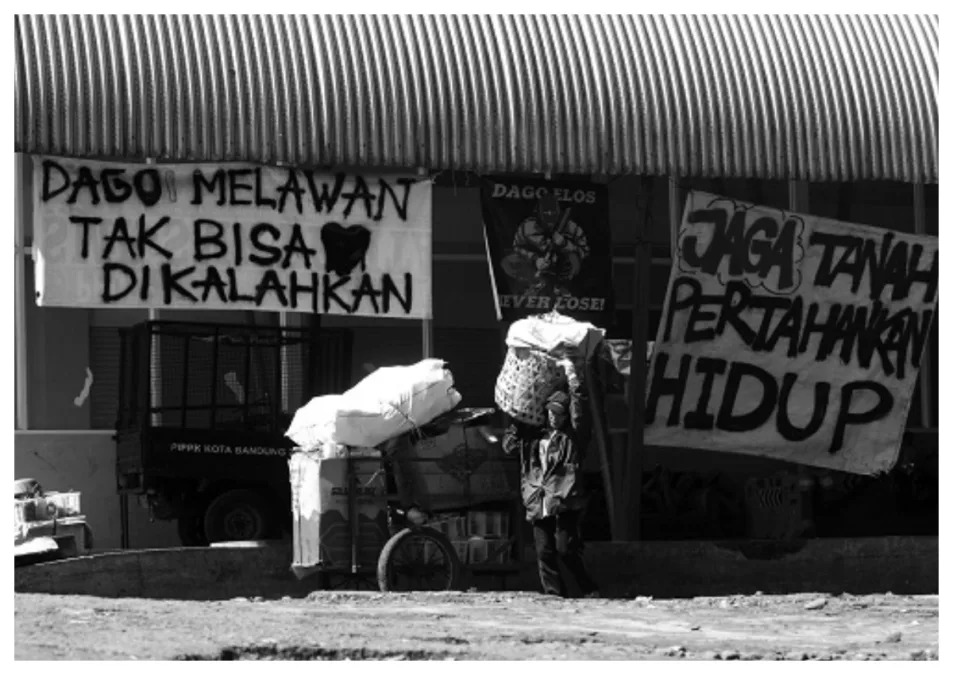 DAGO MELAWAN
TAK BISA
DIKALAHKAN
DAGO ELOS
NEVER LOSE!
JAGA TANAH
PERTAHANKAN
HIDUP
PIPPK KOTA BANDUNG